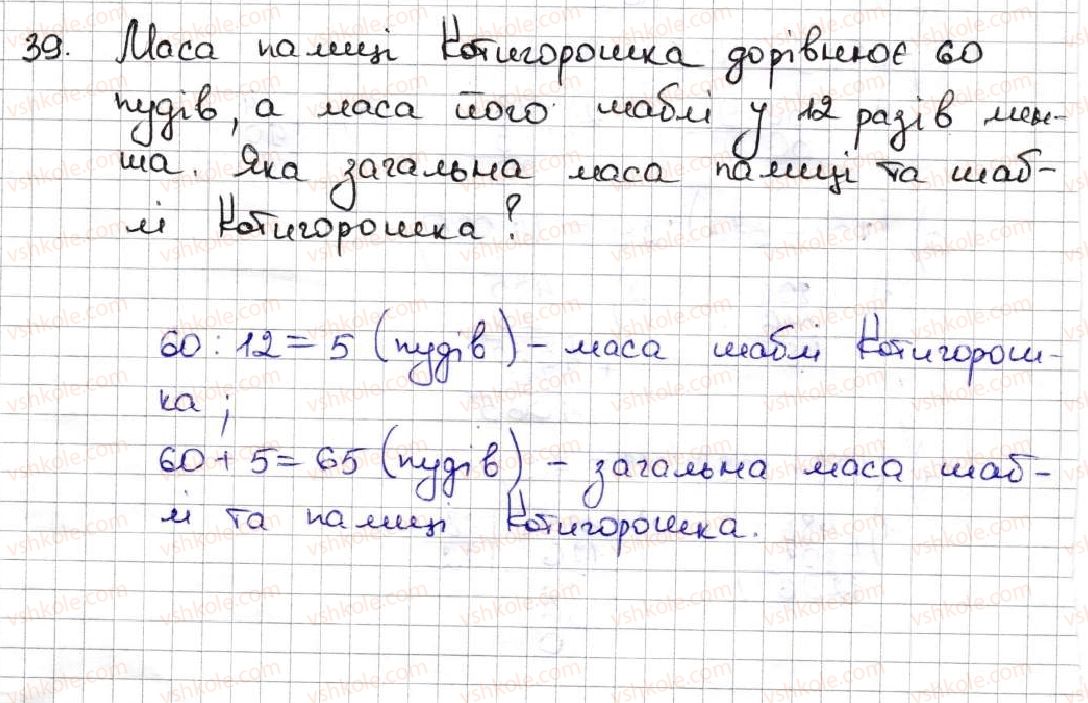 39. Маса палиці Котигорошка дорівнює 60
пудів, а маса його шаблі у 12 разів мен-
ша. Яка загальна маса палиці та шаб-
лі Котигорошка?
60 : 12 = 5 (пудів) – маса шаблі Котигорош-
ка;
60 + 5 = 65 (пудів) – загальна маса шаб-
лі та палиці Котигорошка.